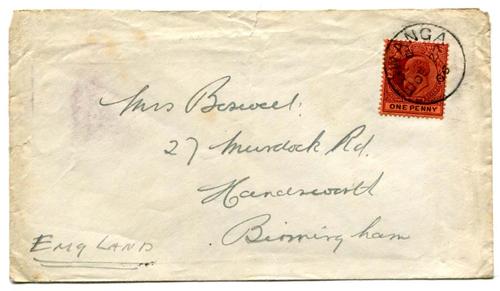 ANGA
ONE PENNY
Mrs Boswell.
27 Murdock Rd.
Handsworth
Birmingham
ENGLAND